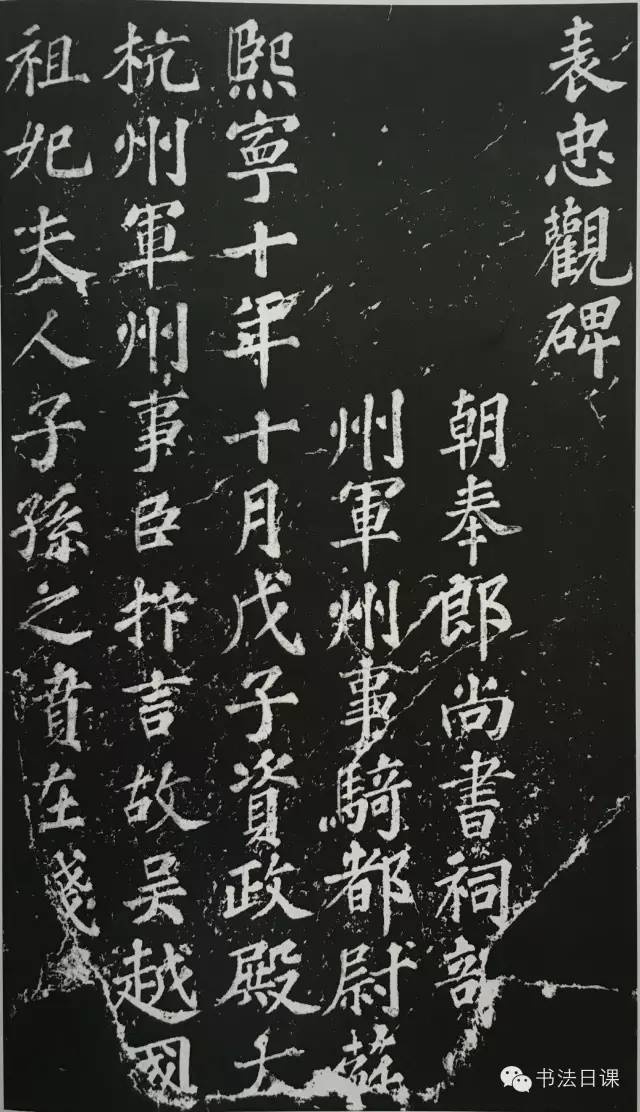 表忠觀碑
朝奉郎尚書祠部
州軍州事騎都尉蘇
熙寧十年十月戊子資政殿大
杭州軍州事臣抃言故吴越国
祖妃夫人子孫之墳在錢
书法日课